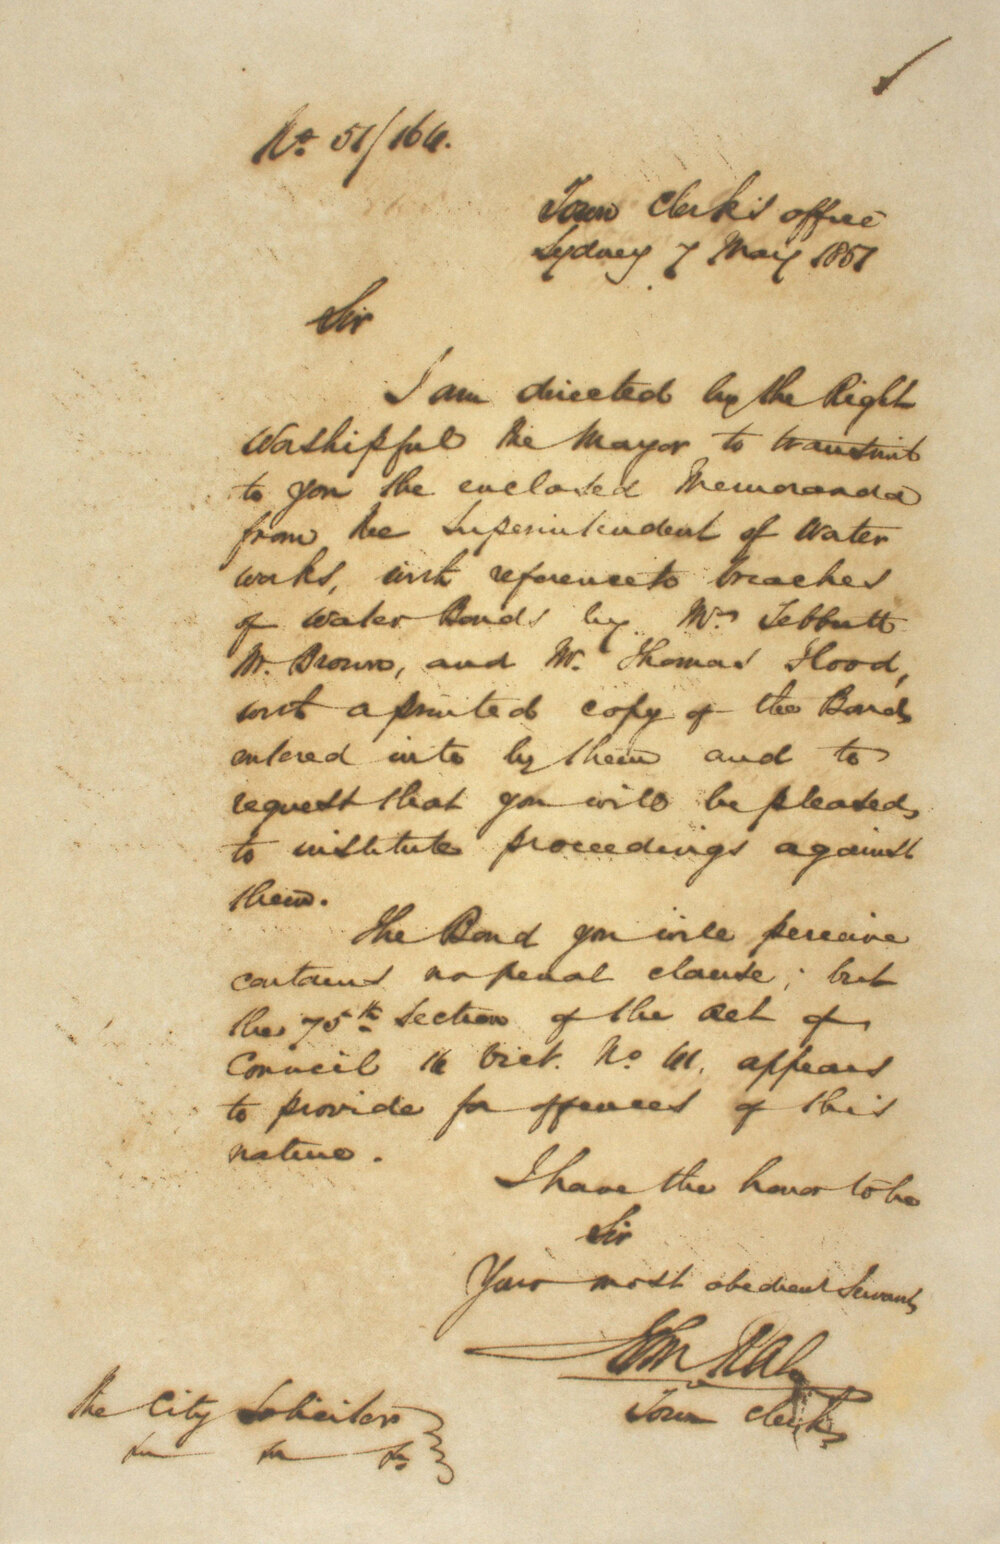 No. 57/164.
Town Clerk's office
Sydney 7 May 1857
Sir
I am directed by the Right
Worshipful the Mayor to transmit
to you the enclosed Memoranda
from the Superintendent of Water
works, with reference to breaches
of Water Bonds by Mrs Tebbutt
Mr. Brown, and Mr. Thomas Flood,
with a printed copy of the Bonds
entered into by them and to
request that you will be pleased
to institute proceedings against
them.
The Bond you will perceive
contains no penal clause; but
the 75th Section of the Act of
Council 16 Vict. No. 41. appears
to provide for offences of this
nature.
I have the honor to be
Sir
Your most obedient Servant
John
Town Clerk
The City Solicitor